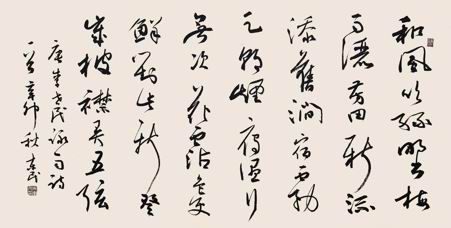 和風吹綠野梅
雨灑芳田新流
添舊澗宿霧
足朝煙雁濕行
無次花沾色更
鮮對此欣登
歲披襟弄五弦
唐李世民詠雨詩
一首辛卯秋